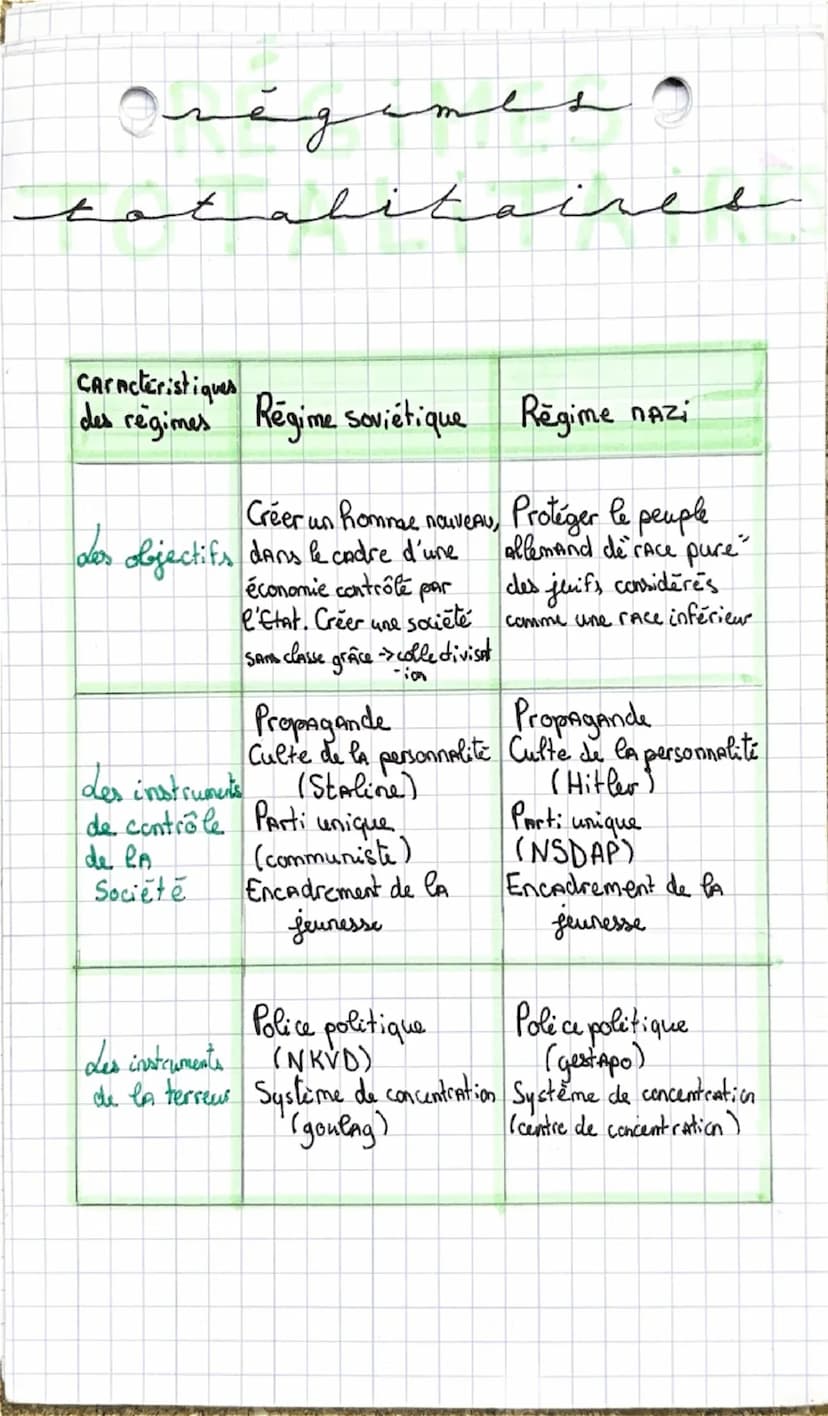 régimes
RÉGIMES
totalitaires
TOTALITAIRES
Caractéristiques
des régimes
Régime soviétique
Régime nazi
Les objectifs
Créer un homme nouveau,
dans le cadre d'une
économie contrôlé par
l'Etat. Créer une société
sans classe grâce -> collectivisat
-ion
Protéger le peuple
allemand de "race pure"
des juifs considérés
comme une race inférieur
Les instruments
de contrôle
de la
Société
Propagande
Culte de la personnalité
(Staline)
Parti unique
(communiste)
Encadrement de la
jeunesse
Propagande
Culte de la personnalité
(Hitler)
Parti unique
(NSDAP)
Encadrement de la
jeunesse
Les instruments
de la terreur
Police politique
(NKVD)
Système de concentration
(goulag)
Police politique
(gestapo)
Système de concentration
(centre de concentration)